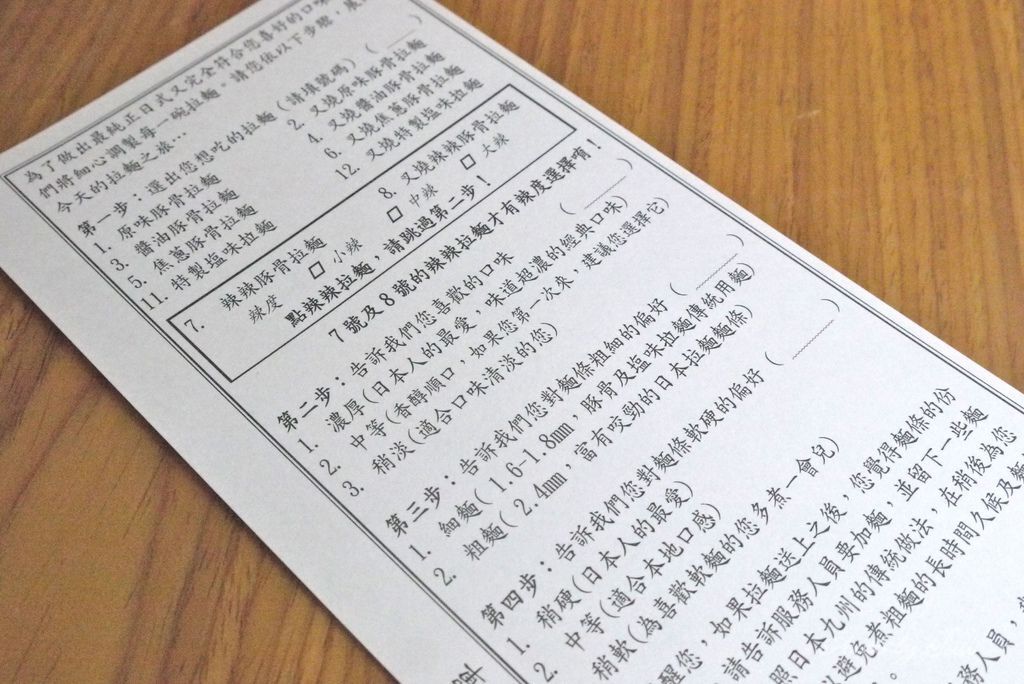 為了做出最純正日式又完全符合您喜好的口味
們將細心調製每一碗拉麵。請您依以下步驟，展
今天的拉麵之旅…
第一步：選出您想吃的拉麵（請填號碼）（ ）
1. 原味豚骨拉麵 2. 叉燒原味豚骨拉麵
3. 醬油豚骨拉麵 4. 叉燒醬油豚骨拉麵
5. 焦蔥豚骨拉麵 6. 叉燒焦蔥豚骨拉麵
11. 特製塩味拉麵 12. 叉燒特製塩味拉麵
7. 辣辣豚骨拉麵 8. 叉燒辣辣豚骨拉麵
辣度 □ 小辣 □ 中辣 □ 大辣
點辣辣拉麵，請跳過第二步！
7號及8號的辣辣拉麵才有辣度選擇唷！
第二步：告訴我們您喜歡的口味（ ）
1. 濃厚(日本人的最愛，味道超濃的經典口味)
2. 中等(香醇順口，如果您第一次來，建議您選擇它)
3. 稍淡(適合口味清淡的您)
第三步：告訴我們您對麵條粗細的偏好（ ）
1. 細麵( 1.6-1.8mm，豚骨及塩味拉麵傳統用麵)
2. 粗麵( 2.4mm，富有咬勁的日本拉麵麵條)
第四步：告訴我們您對麵條軟硬的偏好（ ）
1. 稍硬(日本人的最愛)
2. 中等(適合本地口感)
稍軟(為喜歡軟麵的您多煮一會兒)
醒您，如果拉麵送上之後，您覺得麵條的份
請告訴服務人員要加麵，並留下一些麵
照日本九州的傳統做法，在稍後為您
以避免煮粗麵的長時間久候及麵
。
務人員，